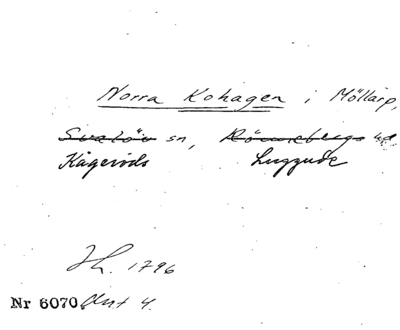 Norra Kohagen i Möllarp,
Svalöv sn, Rönnebergs hd
Kågeröds Luggude
Jh. 1796
Nr 6070 Akt 4.